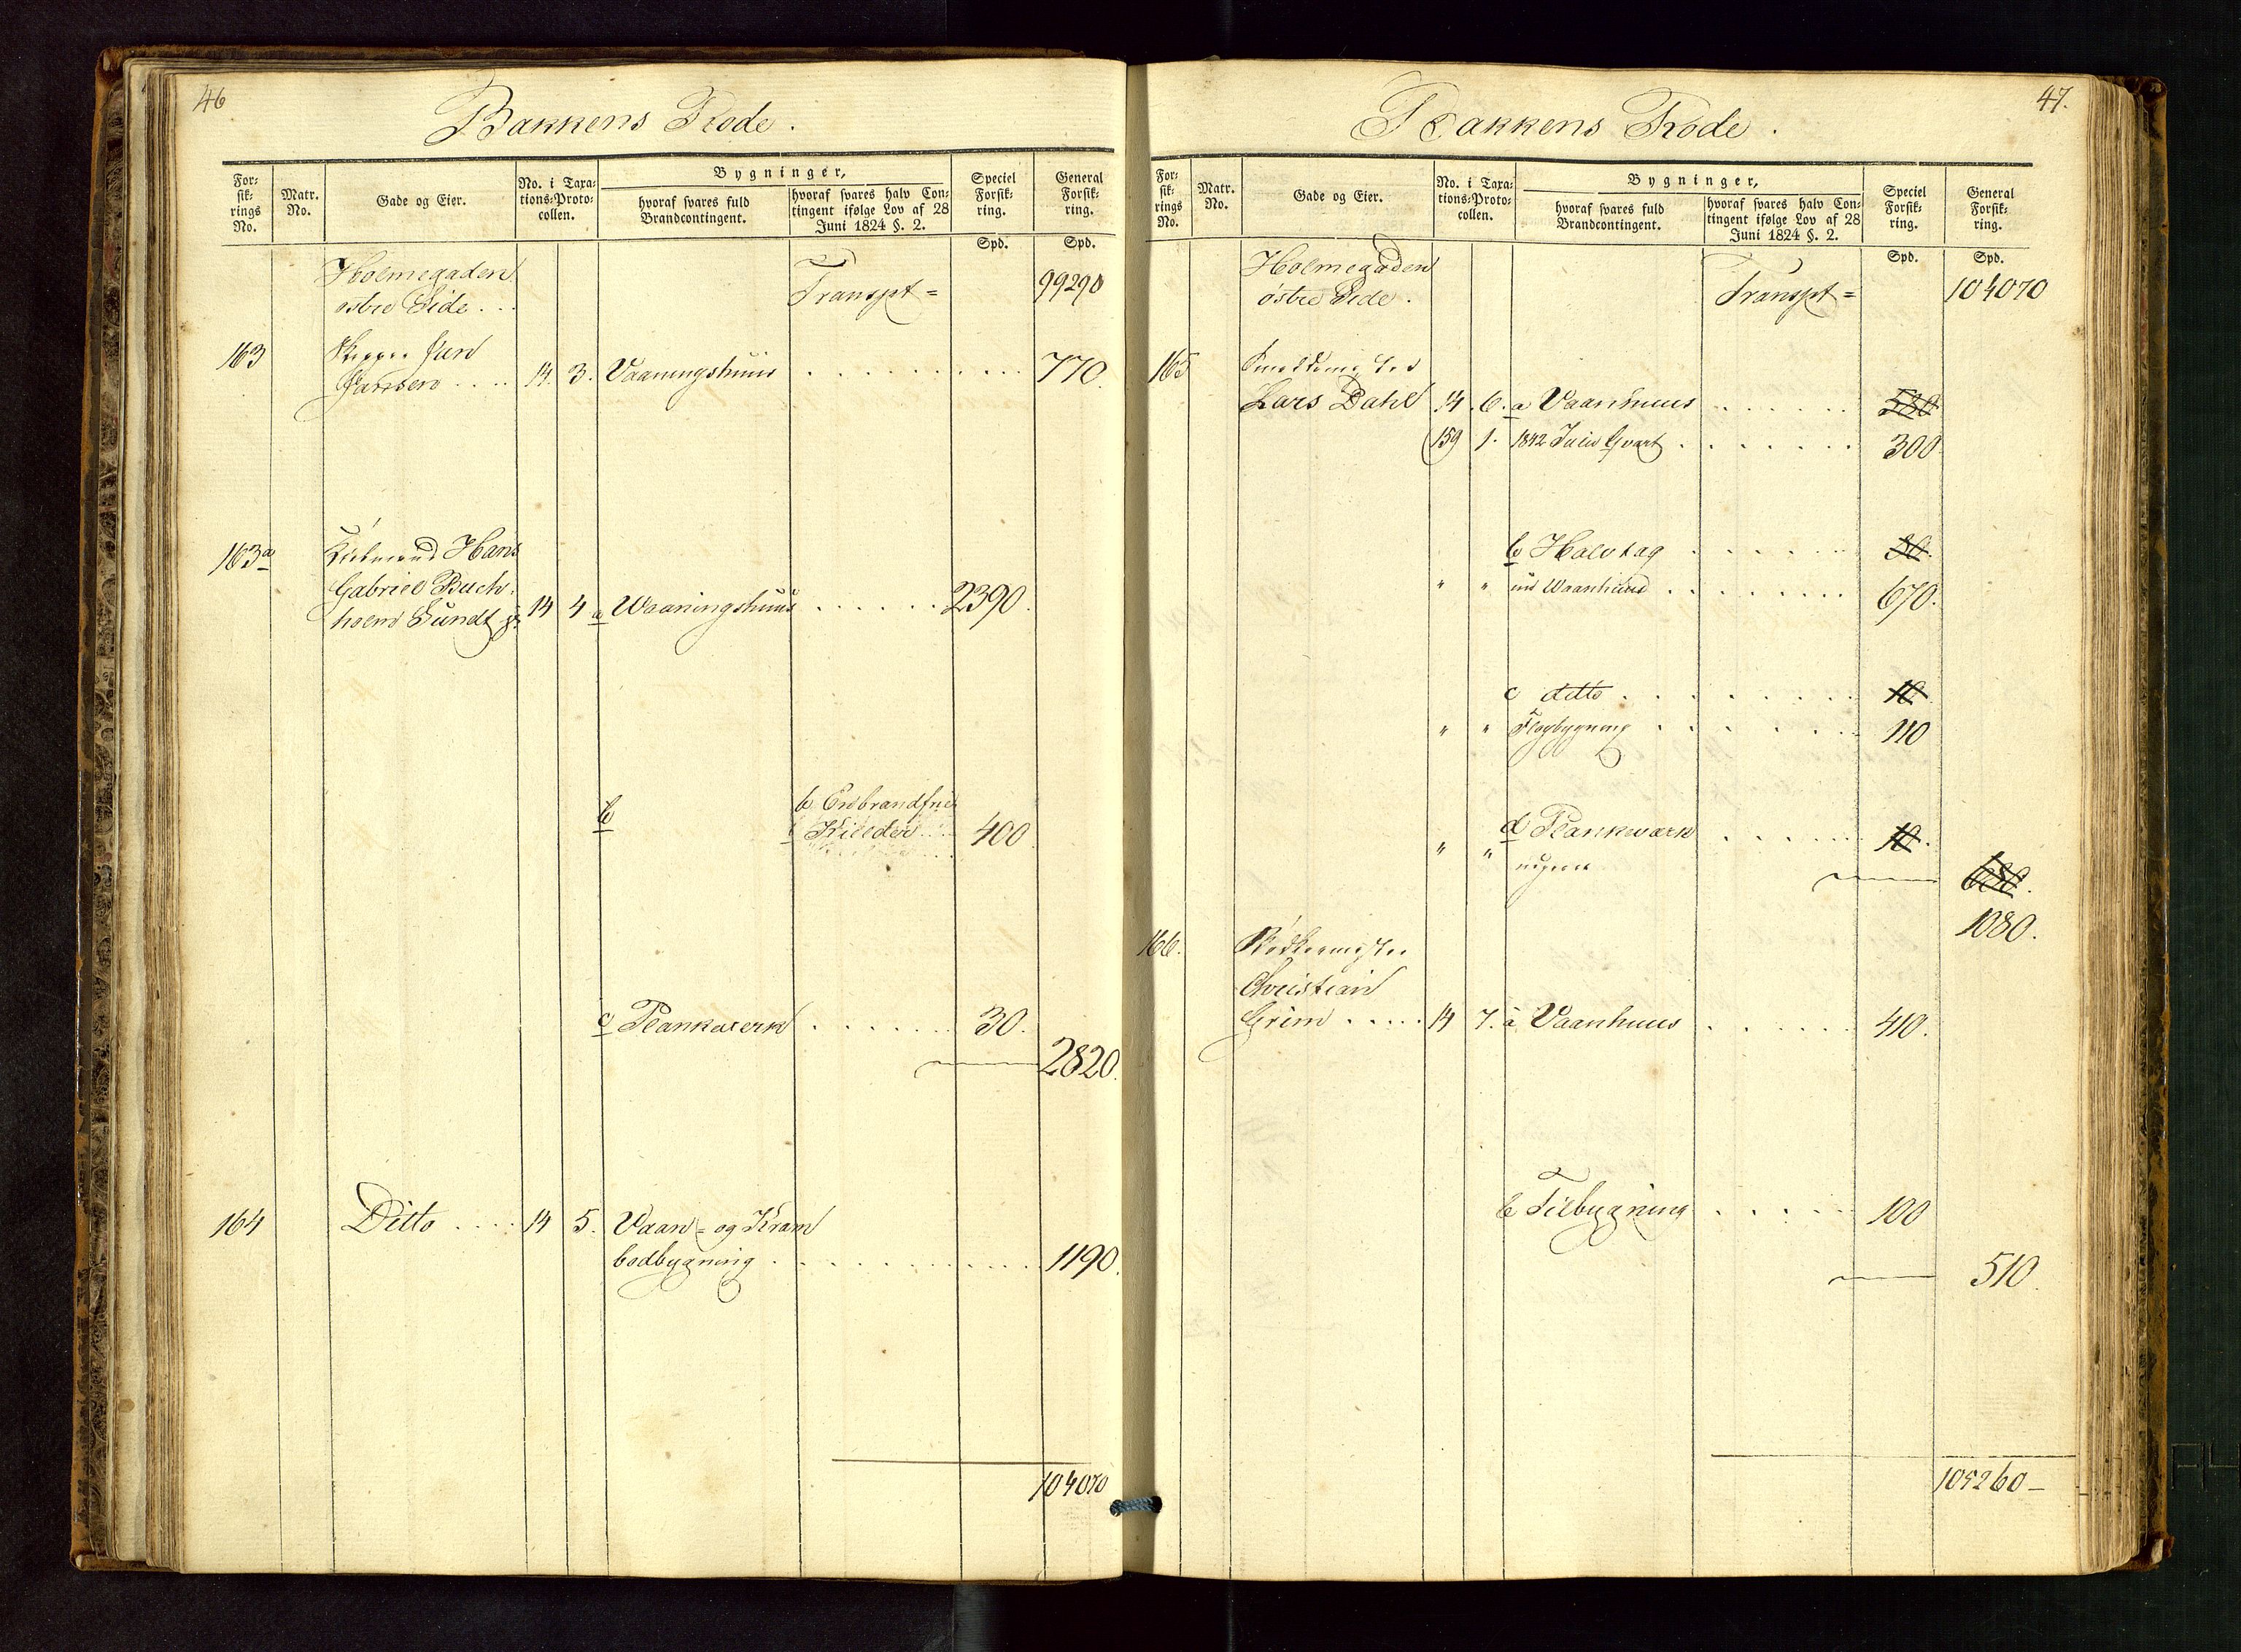 46
Bakkens Rode.
For-
sik-
rings
No.
Matr.
No.
Gade og Eier.
No. i Taxa-
tions-Proto-
collen.
Bygninger,
hvoraf svares fuld
Brandcontingent.
hvoraf svares halv Con-
tingent ifølge Lov af 28
Juni 1824 §. 2.
Speciel
Forsik-
ring.
General
Forsik-
ring.
Spd. Spd.
Holmegaden
østre Side... Transpt = 99290
163 Skipper
Jansen .... 14. 3. Vaaningshuus ........... 770.
163a Kiøbmand Hans
Gabriel Buch-
holm Sundt jr. 14 4 a Waaningshuus ...... 2390.
b b Een brandfrie
Kielder ... 400
c Plankeverk ...... 30.
2820.
164 Ditto .... 14 5. Vaan- og Kram
bodbygning ........... 1190.
104070
47.
Bakkens Rode.
For-
sik-
rings
No.
Matr.
No.
Gade og Eier.
No. i Taxa-
tions-Proto-
collen.
Bygninger,
hvoraf svares fuld
Brandcontingent.
hvoraf svares halv Con-
tingent ifølge Lov af 28
Juni 1824 §. 2.
Speciel
Forsik-
ring.
General
Forsik-
ring.
Spd. Spd.
Holmegaden
østre Side. Transpt = 104070
165
Lars Dahl 14. 6. a Vaanhuus ...... 530
159 1. 1842 ....... 300.
b Halvtag ...... 30.
" " Waanhuus ........ 670.
c ditto ........ 10
" " Fløybygning ....... 110
d Plankværk ..... 10.
" "
680.
1080.
166. Bødkermester
Christian
Grim ..... 14 7. a Vaanhuus ...... 410.
b Tilbygning ..... 100
510.
105260-